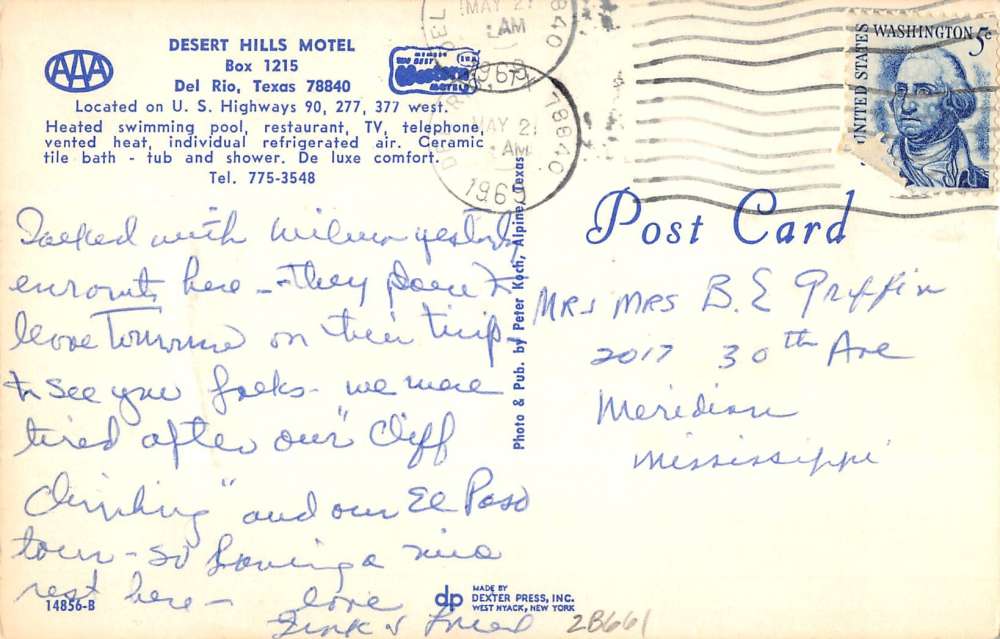 DESERT HILLS MOTEL
Box 1215
Del Rio, Texas 78840
Located on U. S. Highways 90, 277, 377 west.
Heated swimming pool, restaurant, TV, telephone,
vented heat, individual refrigerated air. Ceramic
tile bath - tub and shower. De luxe comfort.
Tel. 775-3548
AAA
MEMBER
BEST
Western
MOTELS
MAY 2
AM
78840
MAY 2
AM
UNITED STATES
WASHINGTON 5c
Post Card
Talked with Wilma yesterday
enroute here - they plan to
leave Tomorrow on their trip
to see you folks - we were
tired after our "Cliff
Climbing" and our El Paso
tour - so having a nice
rest here - love
&
Photo & Pub. by Peter Koch, Alpine, Texas
Mrs Mrs B. E Griffin
2017 30th Ave
Meridian
Mississippi
14856-B
dp
MADE BY
DEXTER PRESS, INC.
WEST NYACK, NEW YORK
2B661